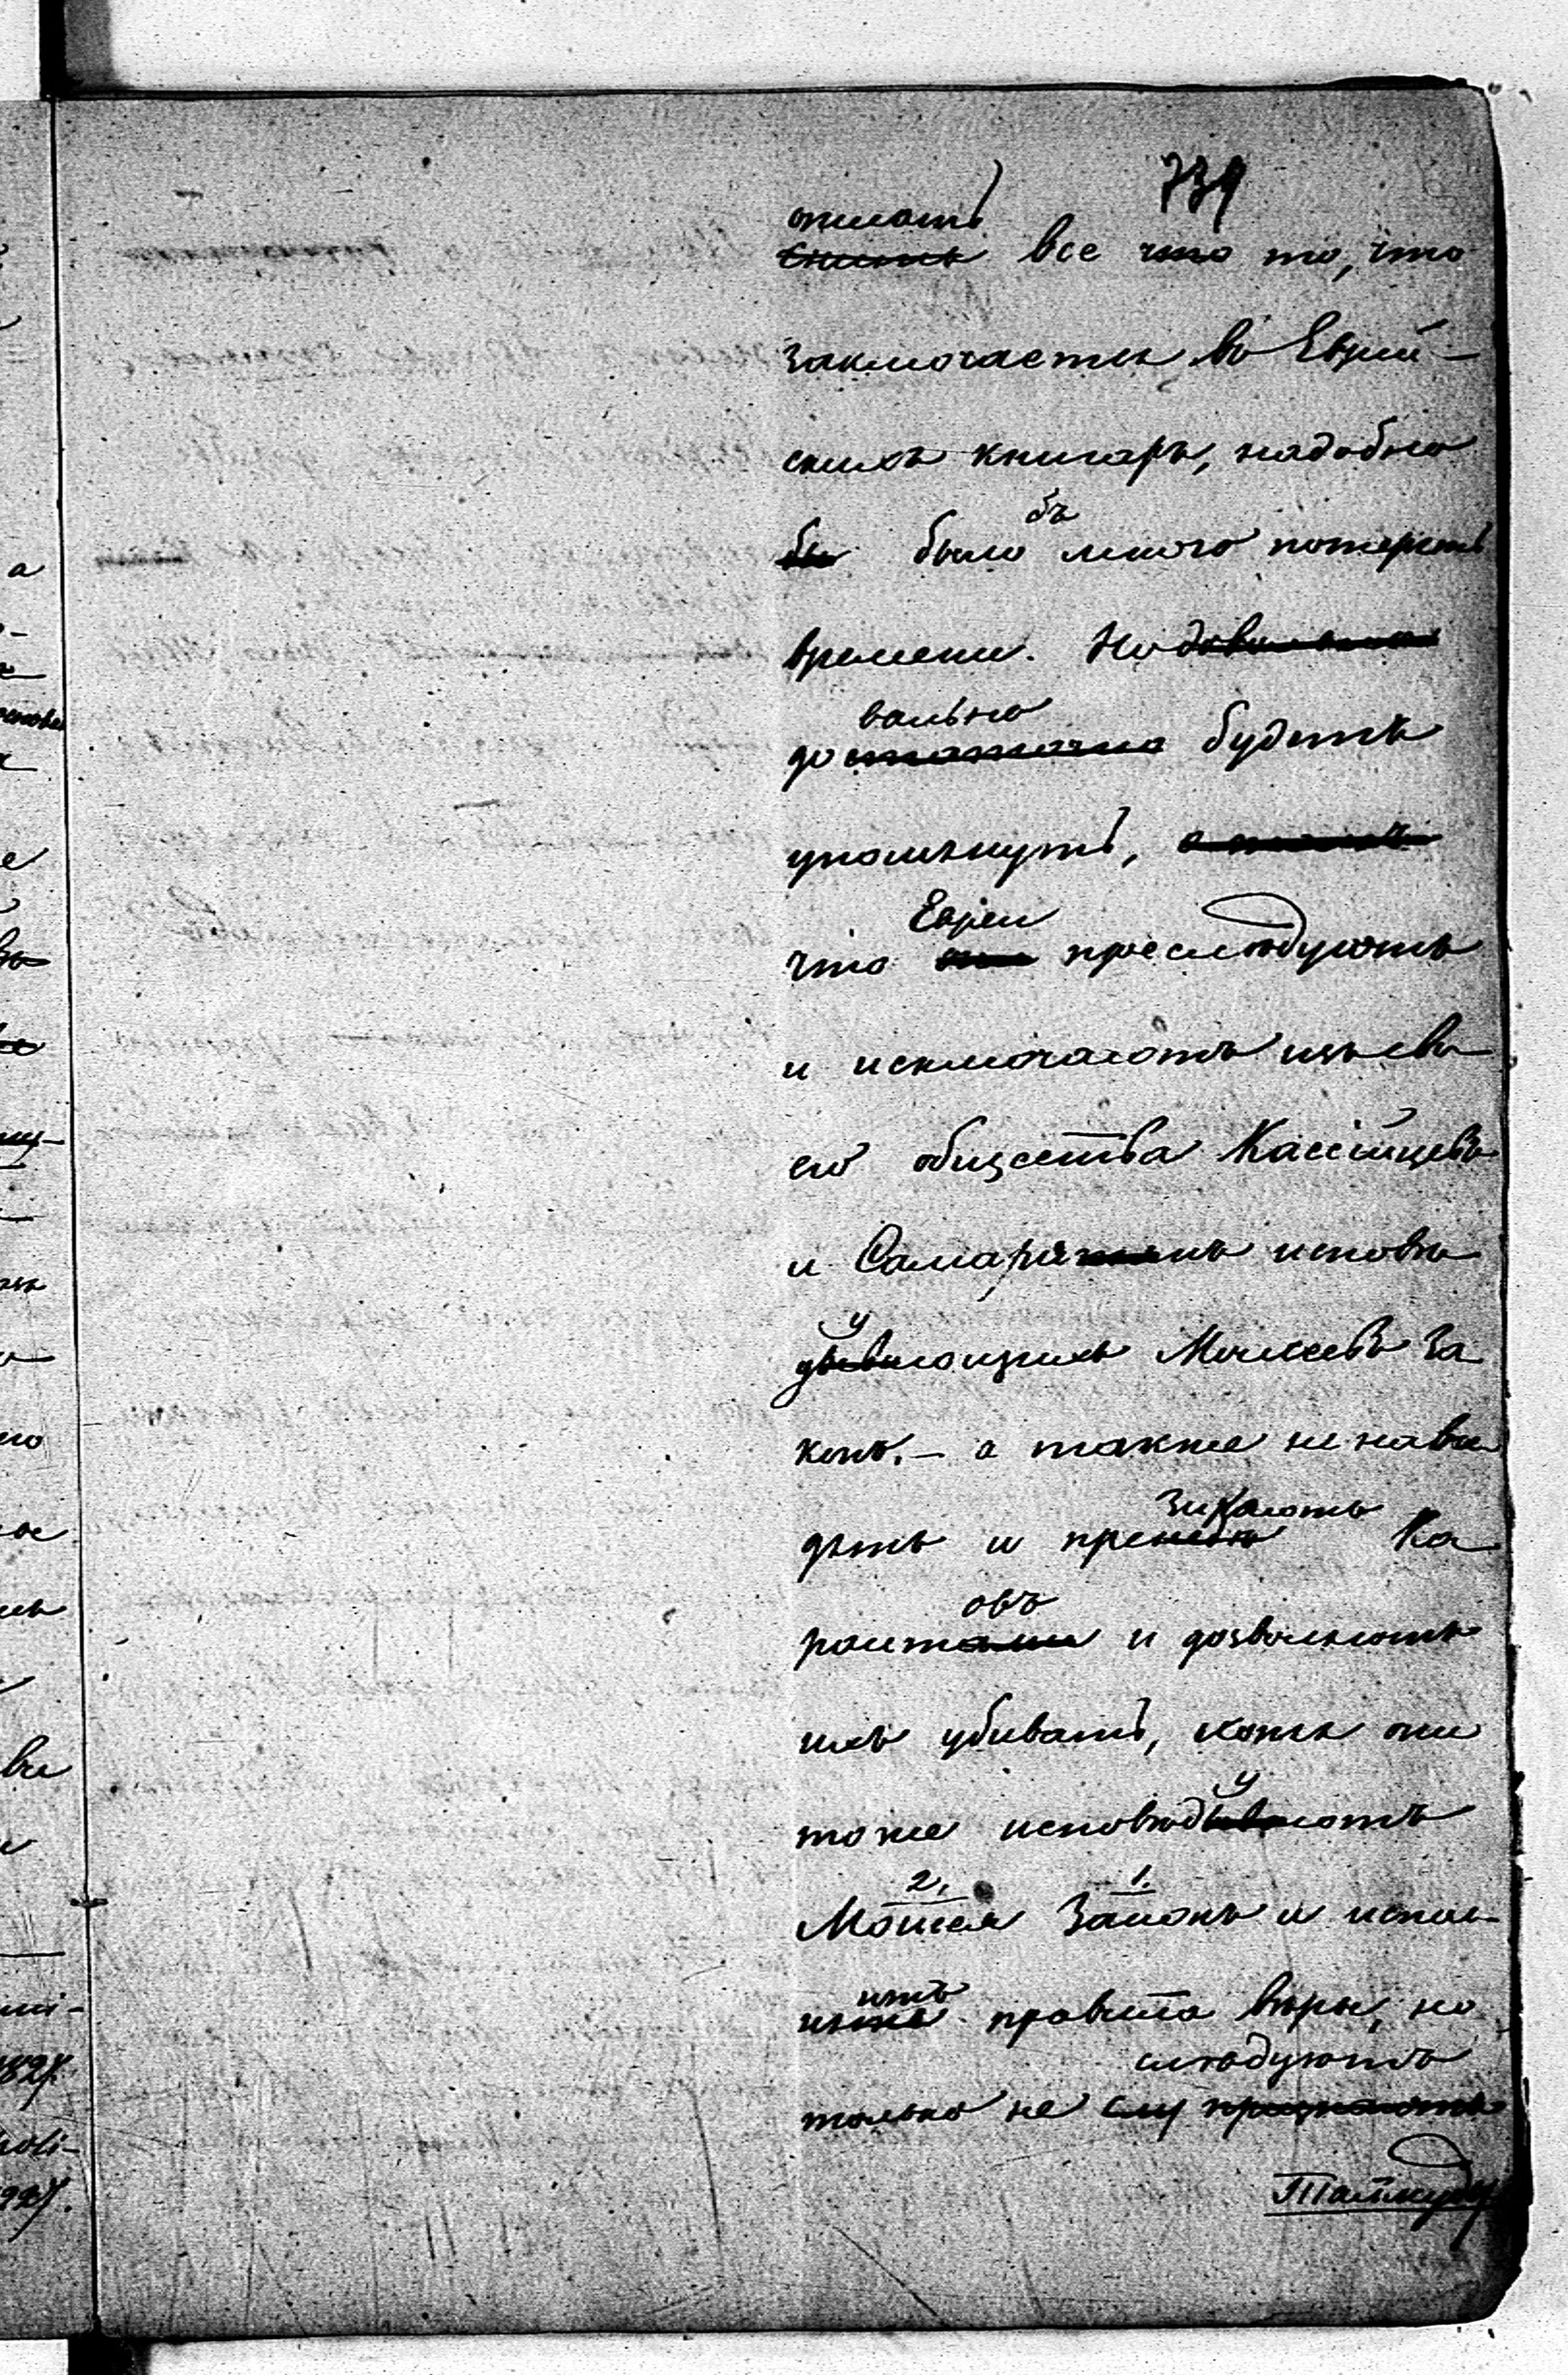 739
описать
все что то, что
заключается въ Еврей-
скихъ книгахъ, надобно
бъ
бы было много потерять
времени. Но
вольно
достаточно будетъ
упомянуть,
Евреи
что они преслѣдуютъ
и исключаютъ изъ сво
его общества Кассійцевъ
и Самарянъ исповѣ
у
дывающихъ Моисеевъ за
конъ. — а также ненави
зираютъ
дятъ и пре Ка
овъ
раитами и дозволяютъ
ихъ убивать, хотя они
у
тоже исповѣдываютъ
2. 1.
Моисея Законъ и испол-
правила вѣры, но
слѣдуютъ
только не слу признаютъ
Талмуду